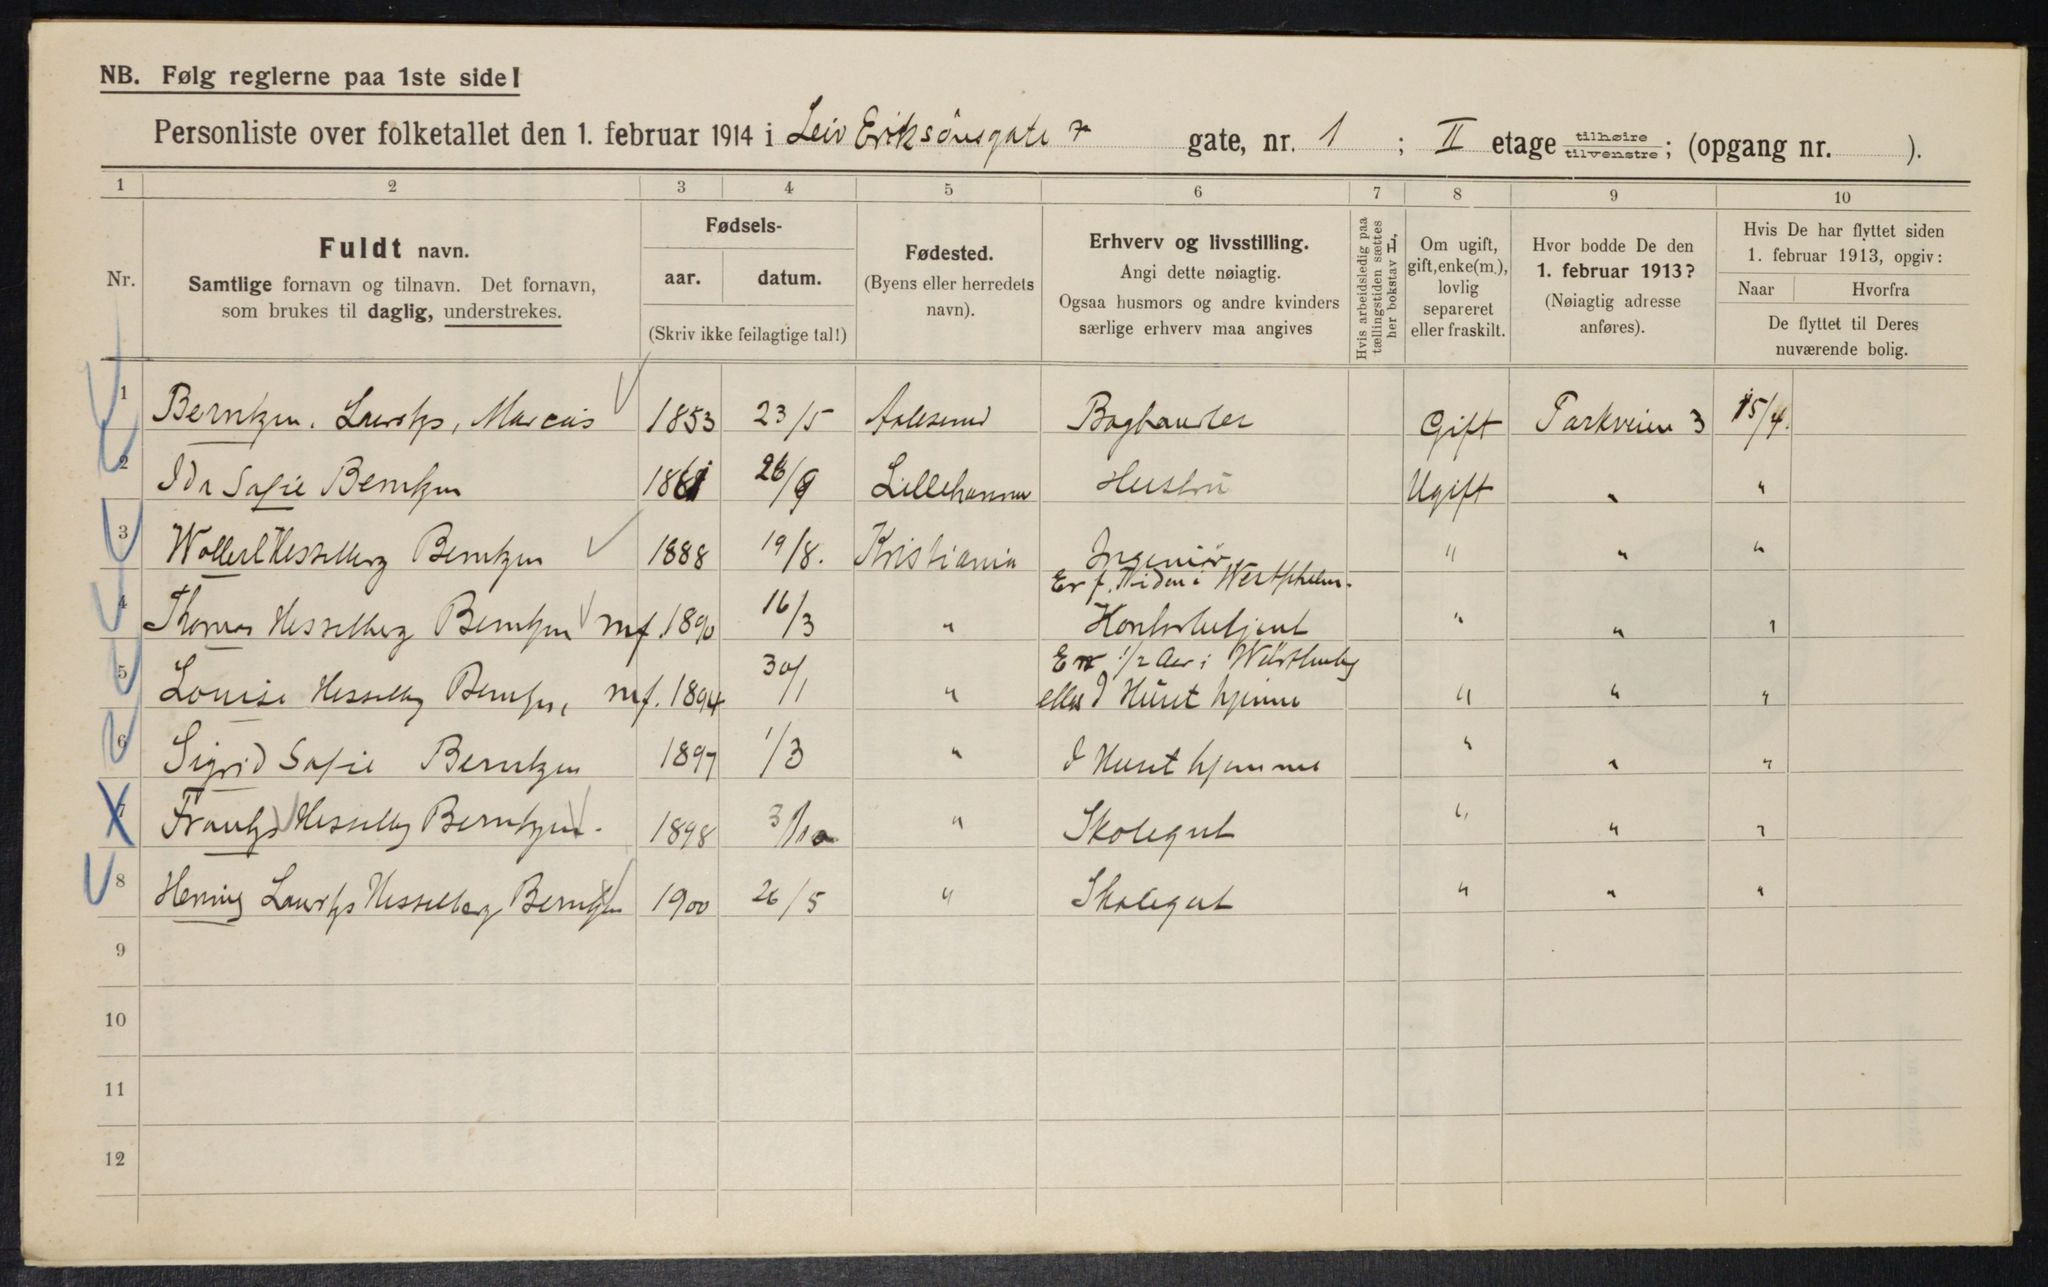 NB. Følg reglerne paa 1ste side!
Personliste over folketallet den 1. februar 1914 i Leiv Eriksönsgate gate, nr. 1 ; II etage tilhøire tilvenstre; (opgang nr. ).
1 2 3 4 5 6 7 8 9 10
Nr.
Fuldt navn.
Samtlige fornavn og tilnavn. Det fornavn,
som brukes til daglig, understrekes.
Fødsels-
aar. datum.
(Skriv ikke feilagtige tal!)
Fødested.
(Byens eller herredets
navn).
Erhverv og livsstilling.
Angi dette nøiagtig.
Ogsaa husmors og andre kvinders
særlige erhverv maa angives
Hvis arbeidsledig paa
tællingstiden sættes
her bokstav L,
Om ugift,
gift, enke(m.),
lovlig
separeret
eller fraskilt.
Hvor bodde De den
1. februar 1913?
(Nøiagtig adresse
anføres).
Hvis De har flyttet siden
1. februar 1913, opgiv:
Naar Hvorfra
De flyttet til Deres
nuværende bolig.
1 Berntzen, Lauritz, Marcus 1853 23/5 Aalesund Boghandler Gift Parkveien 3 15/4.
2 Ida Sofie Berntzen 1861 26/9 Lillehammer Hustru Ugift " "
3 Wollert Hesselberg Berntzen 1888 19/8. Kristiania Ingeniör " " "
Er f. Tiden i
4 Thomas Hesselberg Berntzen mf. 1890 16/3 " Kontorbetjent " " "
Er 1/2 Aar i
5 Louise Hesselberg Berntzen, mf. 1894 30/1 " ellers I Huset hjemme " " "
6 Sigrid Sofie Berntzen 1897 1/3 " I Huset hjemme " " "
7 Frantz Hesselberg Berntzen. 1898 3/10 " Skolegut " " "
8 Henning Lauritz Hesselberg Berntzen 1900 26/5 " Skolegut " " "
9
10
11
12